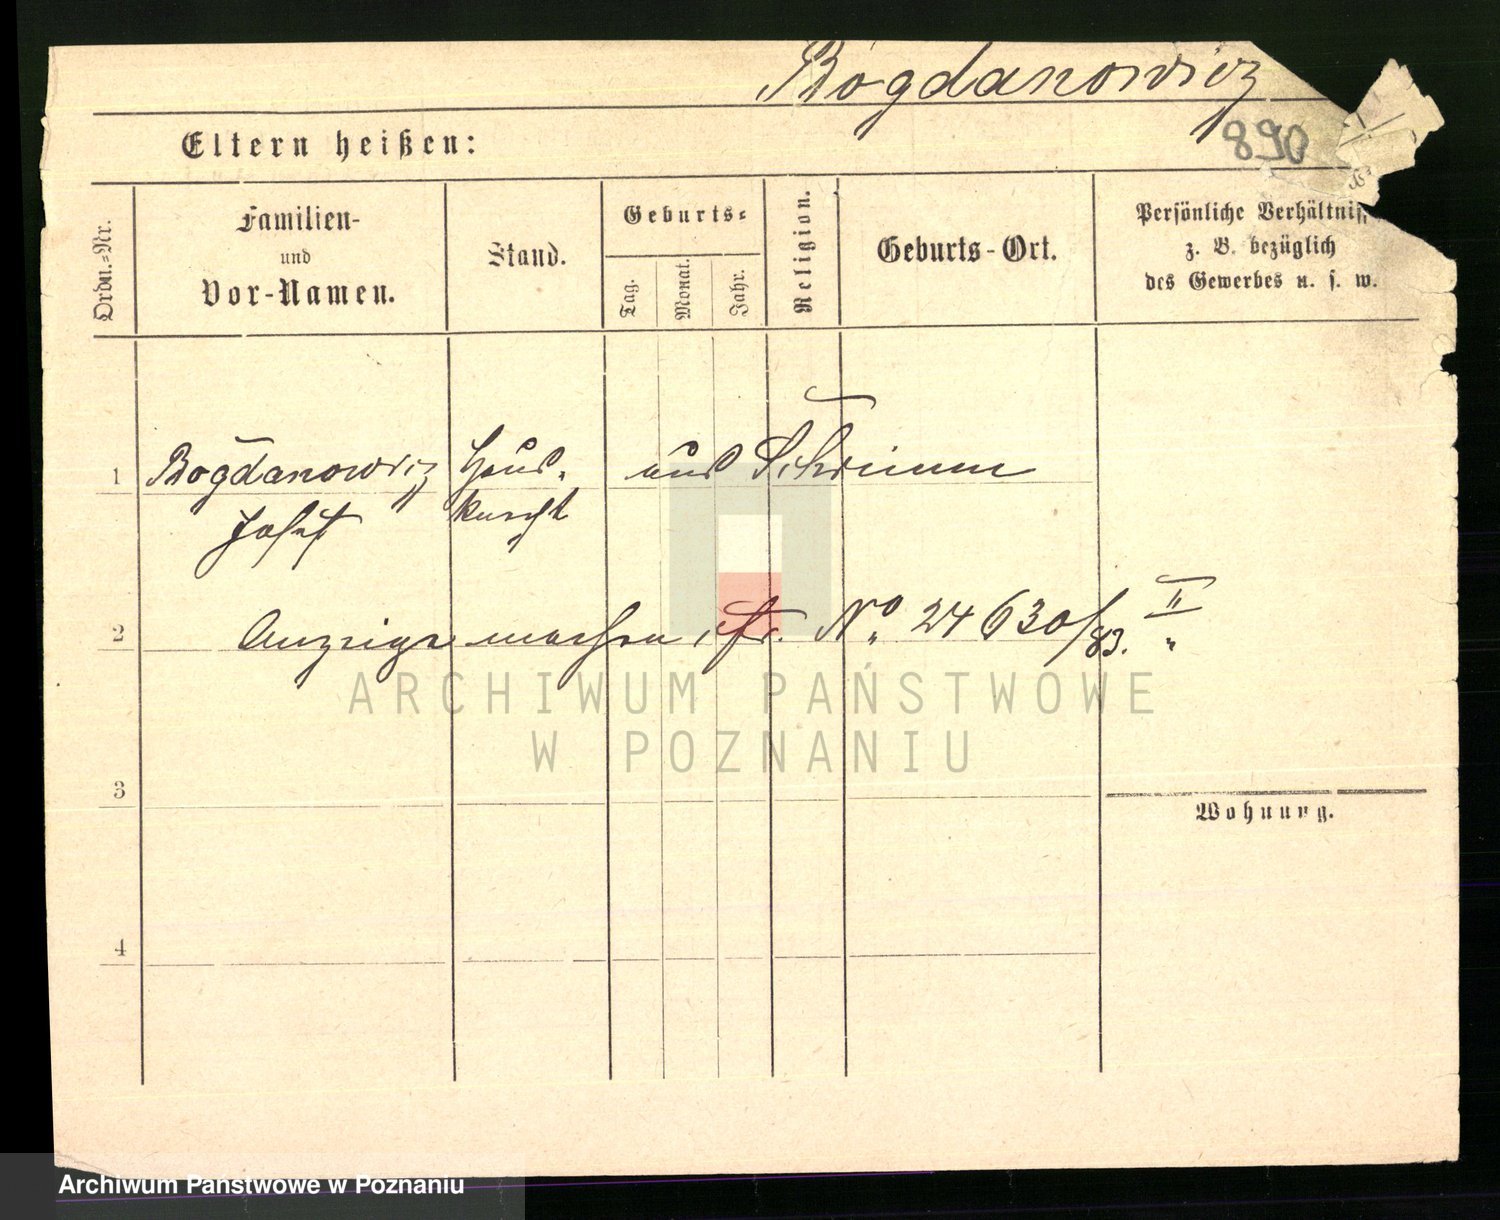 Bogdanowicz
890
Eltern heißen:
Ordn.=Nr.
Familien-
und
Vor-Namen.
Stand.
Geburts=
Tag.
Monat.
Jahr.
Religion.
Geburts-Ort.
Persönliche Verhältnis
z. B. bezüglich
des Gewerbes u. s. w.
1 Bogdanowicz Haus- aus Schrimm
Josef knecht
2 Anzeige machen, cfr. No 24630/83. II
ARCHIWUM PAŃSTWOWE
W POZNANIU
3
Wohnung.
4
Archiwum Państwowe w Poznaniu